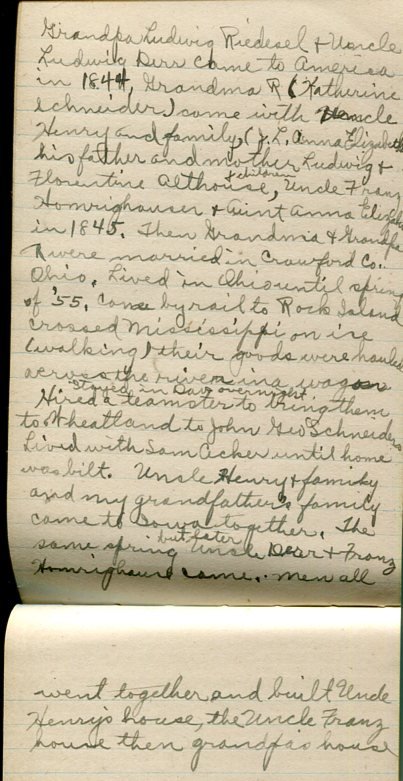 Grandpa Ludwig Riedesel & Uncle
Ludwig Derr came to America
in 1844, Grandma R (Katherine
Schneider) came with Uncle
Henry and family, (J. L. Anna Elizabeth
his father and mother Ludwig &
Florentine Althouse, & children, Uncle Franz
Homrighauser & Aunt Anna Eliz
in 1845. Then Grandma & Grandpa
R were married in Crawford Co.
Ohio. Lived in Ohio until spring
of '55, Came by rail to Rock Island
crossed Mississippi on ice
(walking) their goods were hauled
across the river in a wagon
stayed in Dav overnight
Hired a teamster to bring them
to Wheatland to John Geo Schneiders
Lived with Sam Acker until home
was bilt. Unsle Henry & family
and my grandfather's family
came to Iowa together. The
same spring but later Uncle Derr & Franz
Homrighaus came. men all
went together and built Uncle
Henry's house, the Uncle Franz
house then grandfa's house